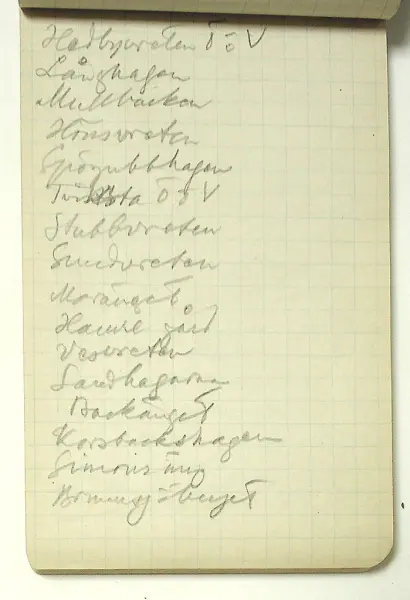 Hedbyvreten Ö o V
Långhagen
Mullbacken
Hönsvreten
Spögubbhagen
Tvistbsta Ö o V
Stubbvreten
Sundvreten
Moränget
Hamre gärd
Vesvreten
Sandhagarna
Backänget
Korsbackshagen
Simons äng